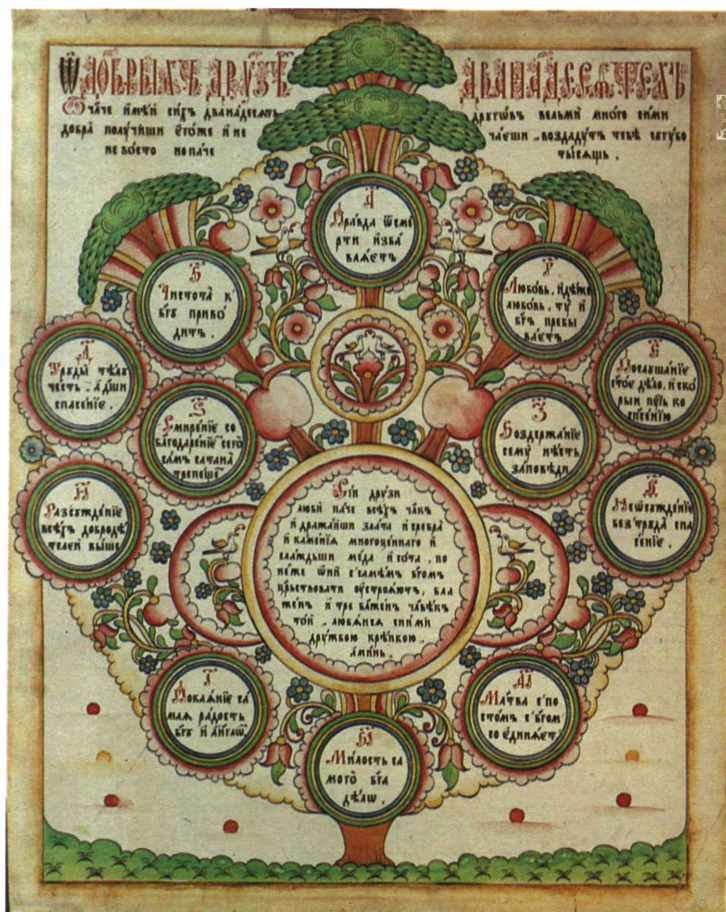 Ѿ ДО́БРЫХЪ ДРꙊЗѢ́ ДВАНАДЕСѦТЕХЪ
Ѻ҆ ча́че и҆мѣ́й си́хъ дванадесѧть
дрꙋгѡ́въ вельмѝ мно́го си́ми
добра̀ полꙋ́чиши є҆го́же и҆ не
ча́еши
воздадꙋ́тъ тебѣ̀ сꙋгꙋ́бо
но па́че
ты́сѧщь .
А҃
Пра́вда ѿ сме
рти и҆зба
влѧ́етъ
В҃
Чистота̀ к
бг҃ꙋ приво́
дитъ .
Г҃
Любо́вь , и҆дѣ́же
любо́вь , тꙋ̀ и҆
бг҃ъ пребы
ва́етъ
Д҃
Трꙋды̀ тѣ́лꙋ
честь . а дш҃и
спасе́нїе .
Е҃
Послꙋша́нїе
ст҃о́е дѣ́ло , и҆ ско́
рыи пꙋ́ть ко
сп҃се́нїю
Ѕ҃
Смире́нїе со
благодаре́нїе сего̀
самъ сатана̀
трепеще
З҃
Воздержа́нїе
семꙋ̀ нѣ́сть
за́повѣди
И҃
Разсꙋжде́нїе
всѣ́хъ добродѣ́
телей вы́ше
Ѳ҃
Неѡсꙋжде́нїе
без трꙋда̀ спа
се́нїе .
Сі́и дрꙋзи
любѝ па́че всѣ́хъ ча҃къ
и҆ дража́йши зла́та и҆ сребра̀
и҆ ка́менїѧ многоцѣ́ннаго и҆
сла́ждьши ме́да и҆ со́та , по
не́же ѻ҆ні́и с самѣ́мъ бг҃омъ
цр҃ьствовати ᲂу҆строѧ́ютъ , бла
же́нъ и҆ треблаже́нъ ча҃вѣкъ
то́й . любѧ́йсѧ с ни́ми
дрꙋ́жбою крѣ́пкою .
А҆ми́нь .
І҃
Покаѧ́нїе са́
маѧ ра́дость
бг҃ꙋ и҆ а҆́нг҃лѡ
АІ҃
Мл҃тва с по
сто́мъ с бг҃омъ
соединѧ́етъ
ВІ҃
Ми́лость са
мого̀ бг҃а
дѣ́лѡ .